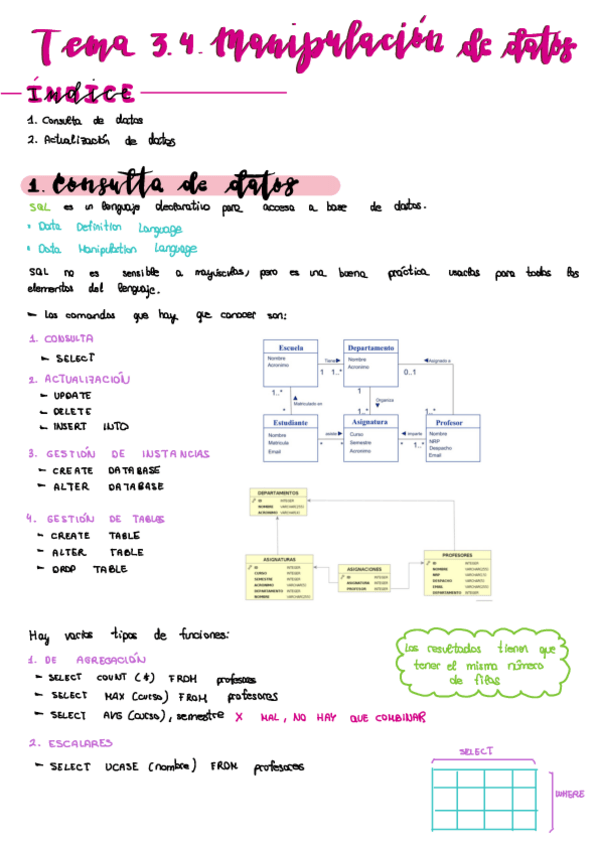 Tema 3.4. Manipulación de datos
ÍNDICE
1. Consulta de datos
2. Actualización de datos
1. Consulta de datos
SQL es un lenguaje declarativo para acceso a base de datos.
• Data Definition Language
• Data Manipulation Language
SQL no es sensible a mayúsculas, pero es una buena práctica usarlas para todos los
elementos del lenguaje.
– Los comandos que hay que conocer son:
1. CONSULTA
– SELECT
2. ACTUALIZACIÓN
– UPDATE
– DELETE
– INSERT INTO
3. GESTIÓN DE INSTANCIAS
– CREATE DATABASE
– ALTER DATABASE
4. GESTIÓN DE TABLAS
– CREATE TABLE
– ALTER TABLE
– DROP TABLE
Escuela
Nombre
Acronimo
Tiene
1 1..*
Departamento
Nombre
Acronimo
Asignado a
0..1
1..*
Matriculado en
*
1
Organiza
1..*
1..*
Estudiante
Nombre
Matricula
Email
asiste
* *
Asignatura
Curso
Semestre
Acronimo
Imparte
* 1..*
Profesor
Nombre
NRP
Despacho
Email
DEPARTAMENTOS
ID INTEGER
NOMBRE
ACRONIMO
ASIGNATURAS
ID INTEGER
CURSO INTEGER
SEMESTRE INTEGER
ACRONIMO
DEPARTAMENTO INTEGER
NOMBRE
ASIGNACIONES
ID INTEGER
ASIGNATURA INTEGER
PROFESOR INTEGER
PROFESORES
ID INTEGER
NOMBRE
NRP
DESPACHO
EMAIL
DEPARTAMENTO INTEGER
Hay varios tipos de funciones:
1. DE AGREGACIÓN
– SELECT COUNT (*) FROM profesores
– SELECT MAX (curso) FROM profesores
– SELECT AVG (curso), semestre X MAL, NO HAY QUE COMBINAR
Los resultados tienen que
tener el mismo número
de filas
2. ESCALARES
– SELECT UCASE (nombre) FROM profesores
SELECT
WHERE